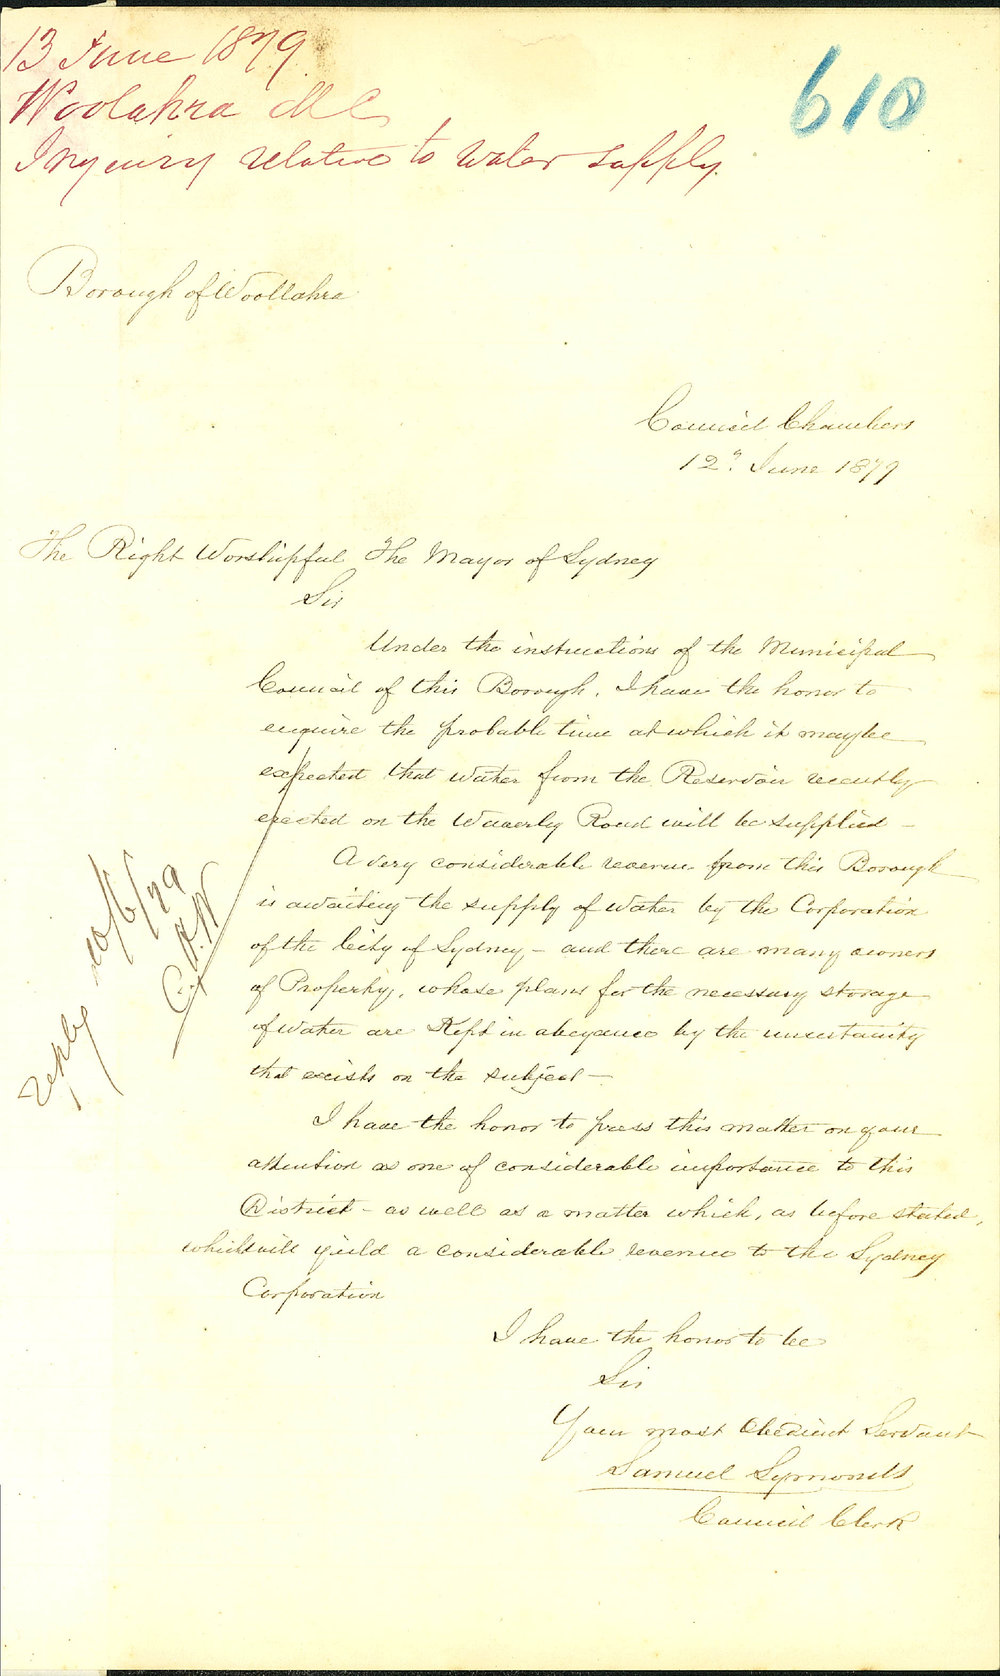 13 June 1879
610
Woolahra M C
Inquiry relative to water supply.
Borough of Woollahra
Council Chambers
12" June 1879
The Right Worshipful The Mayor of Sydney
Sir
Under the instructions of the Municipal
Council of this Borough, I have the honor to
enquire the probable time at which it may be
expected that water from the Reservoir recently
erected on the Waverly Road will be supplied –
A very considerable revenue from this Borough
is awaiting the supply of Water by the Corporation
of the City of Sydney – and there are many owners
of Property, whose plans for the necessary storage
of Water are Kept in abeyance by the uncertainty
that exists on the subject –
I have the honor to press this matter on your
attention as one of considerable importance to this
District – as well as a matter which, as before stated,
which will yield a considerable revenue to the Sydney
Corporation
I have the honor to be
Sir
Your most Obedient Servant
Samuel Symonds
Council Clerk
reply 20/6/79